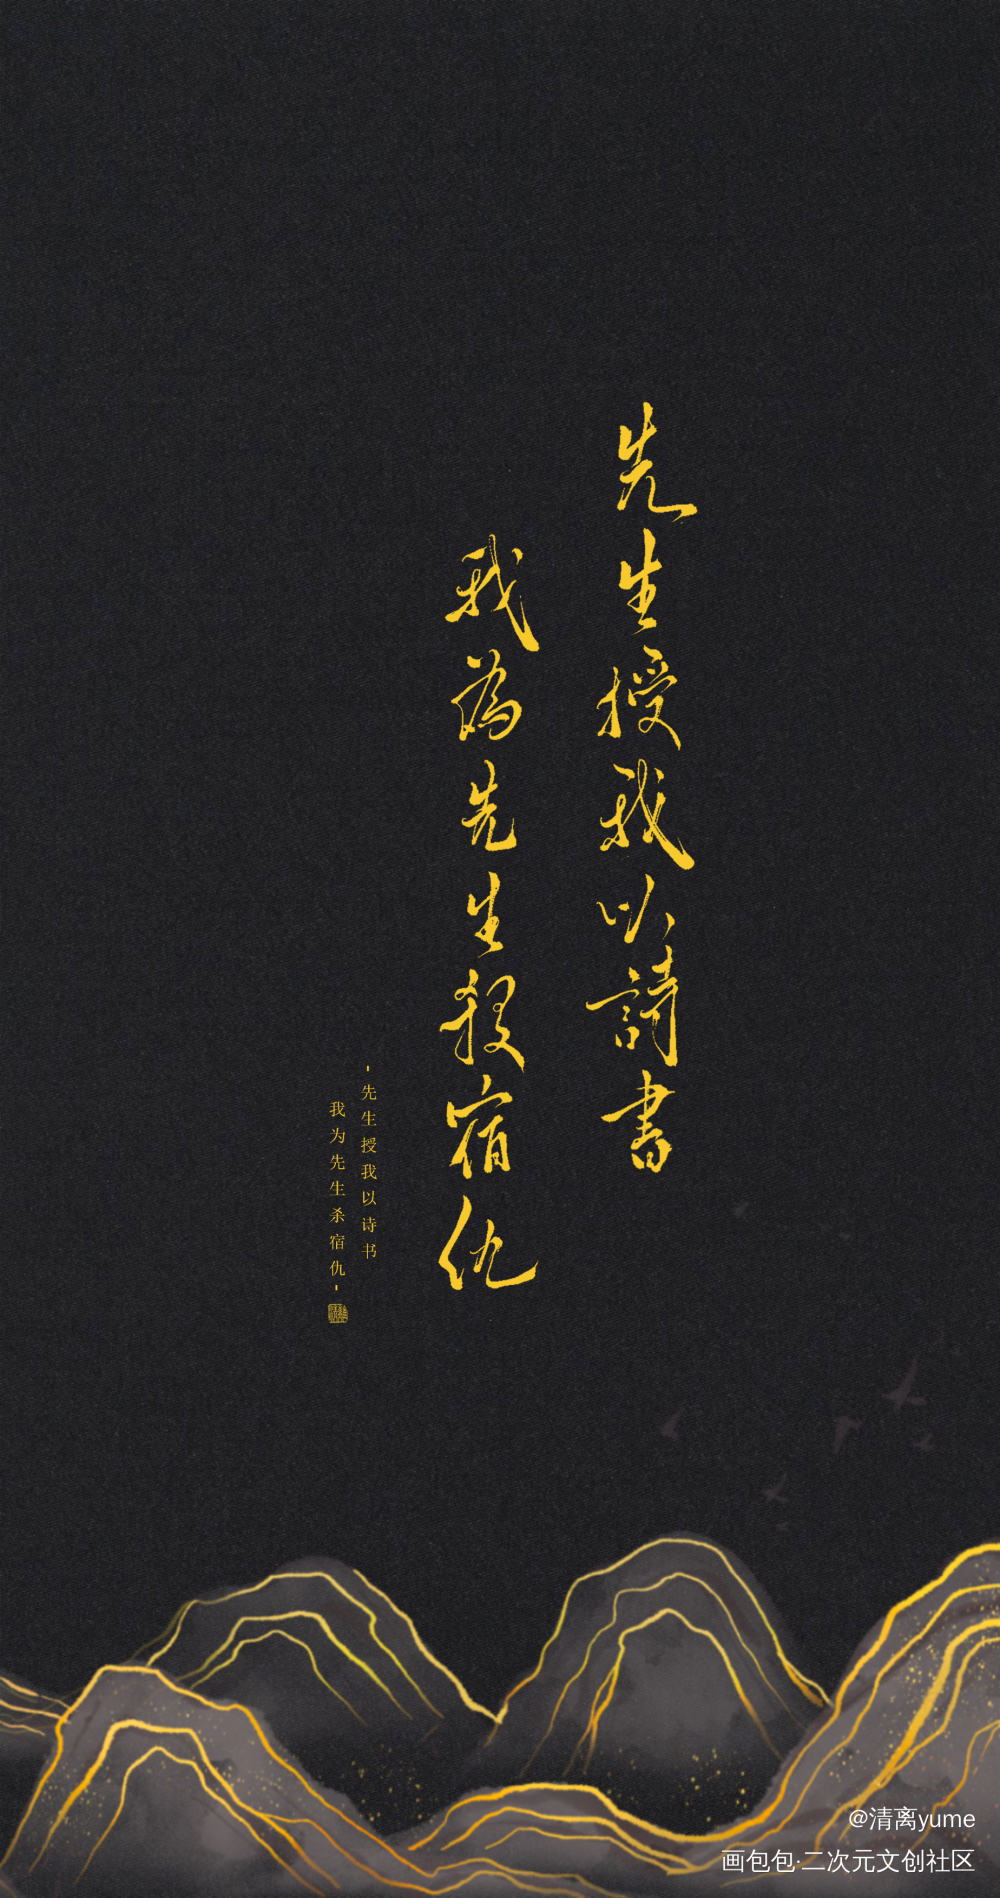 先生授我以詩書
我為先生殺宿仇
-先生授我以诗书
我为先生杀宿仇-
@清离yume
画包包·二次元文创社区